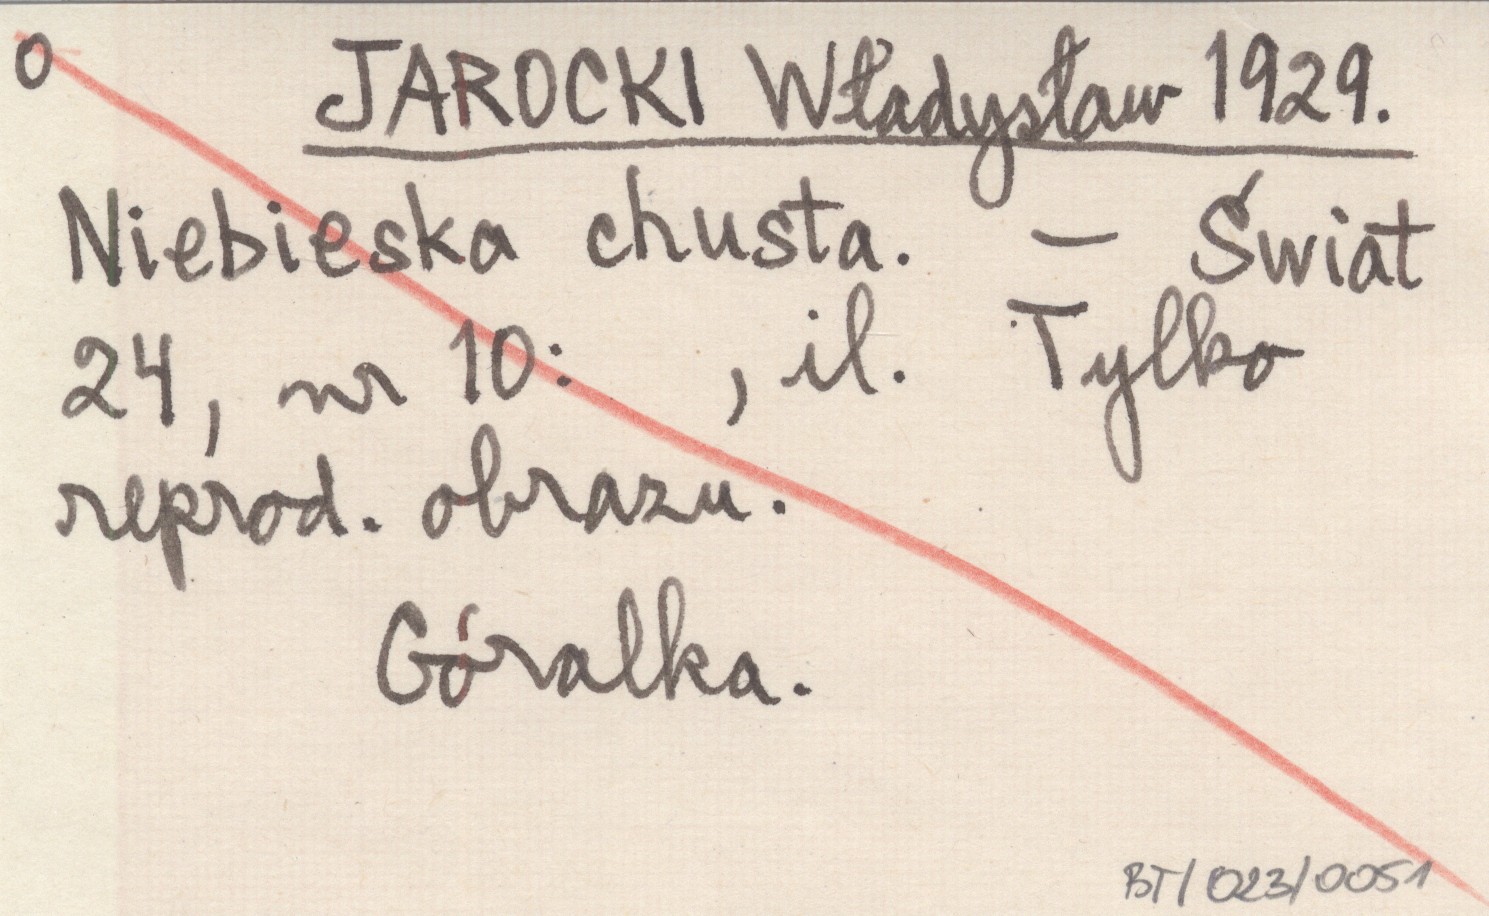 0 JAROCKI Władysław 1929.
Niebieska chusta. – Świat
24, nr 10: , il. Tylko
reprod. obrazu.
Góralka.
BT/023/0051